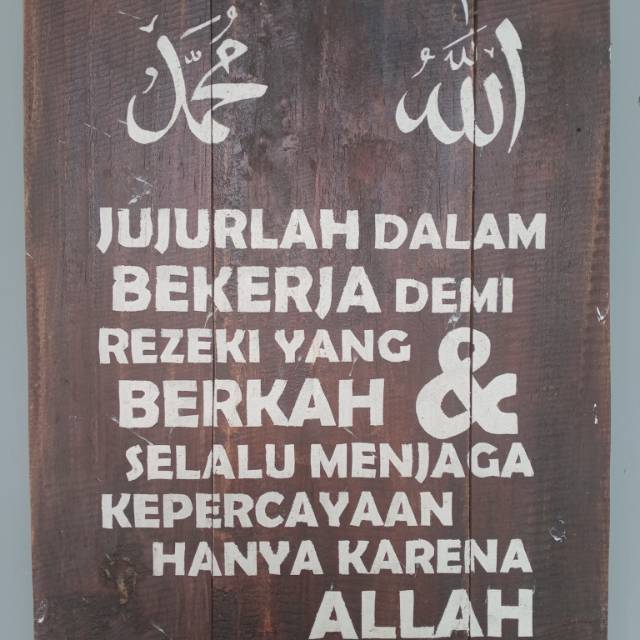 الله محمد
JUJURLAH DALAM
BEKERJA DEMI
REZEKI YANG
BERKAH &
SELALU MENJAGA
KEPERCAYAAN
HANYA KARENA
ALLAH